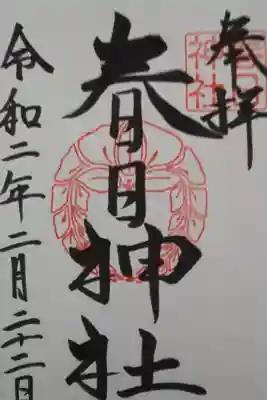 奉拝
春日神社
令和二年二月二十二日